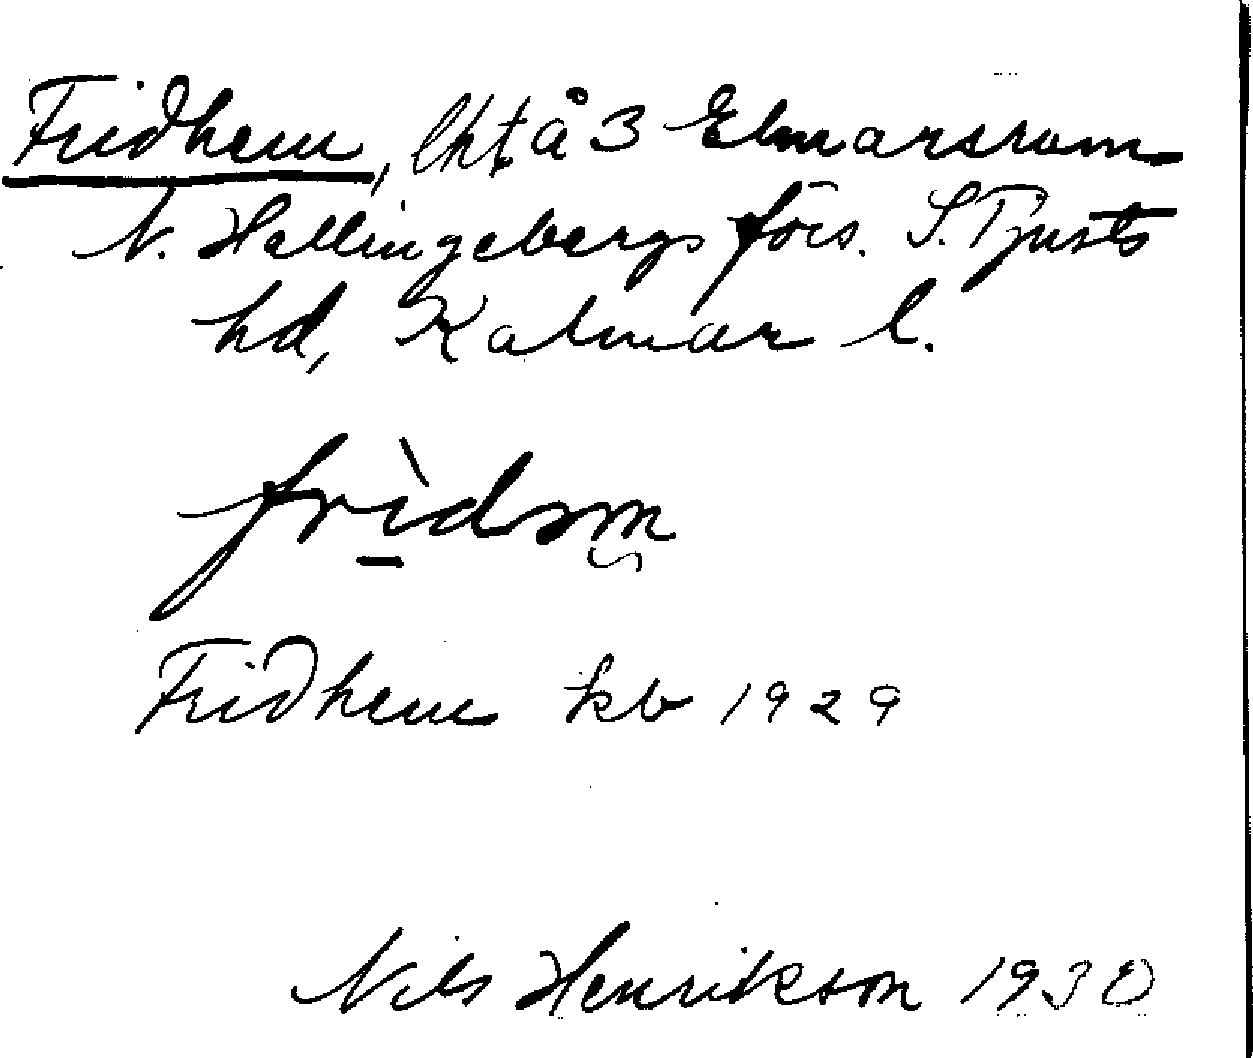 Fridhem, lht å 3 Elmarsrum
N. Hallingebergs förs. S. Tjusts
hd, Kalmar l.
frìdəm
Fridhem kb 1929
Nils Henrikson 1930